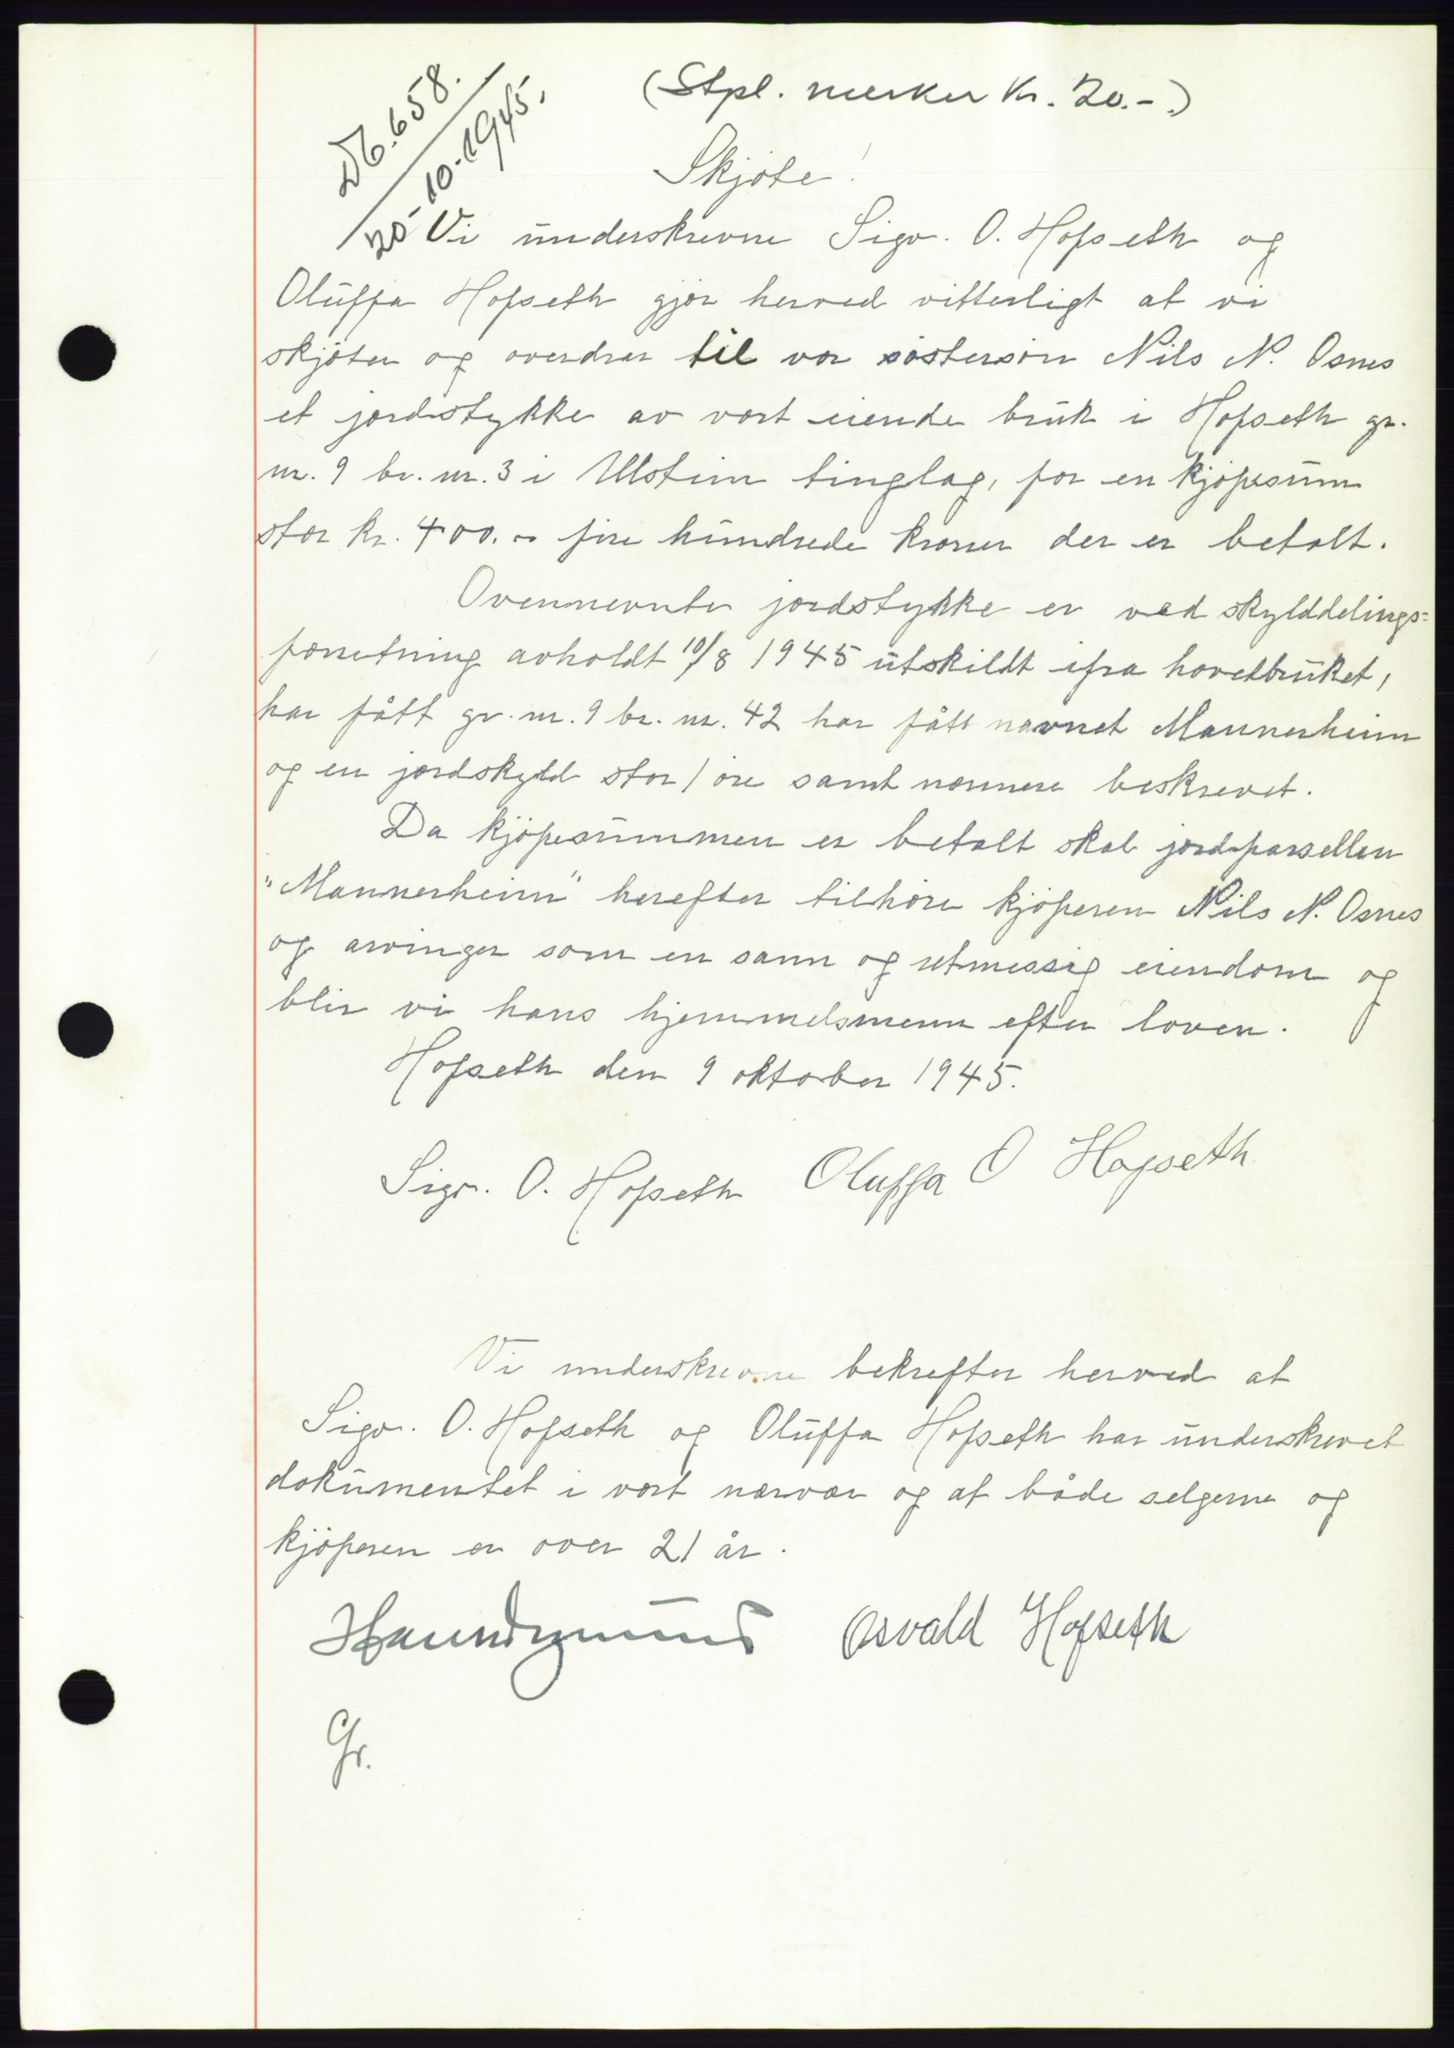 Db. 658.
20-10-1945.
(Stpl. merker kr. 20.-.)
Skjöte!
Vi underskrevne Sigv. O. Hofseth og
Oluffa Hofseth gjör herved vitterligt at vi
skjöter og overdrar til vor söstersön Nils N. Osnes
et jordstykke av vort eiende bruk i Hofseth gr.
nr. 9 br. nr. 3 i Ulstein tinglag, for en kjöpesum
stor kr. 400.- fire hundrede kroner der er betalt.
Ovennevnte jordstykke er ved skylddelings=
forretning avholdt 10/8 1945 utskildt ifra hovedbruket,
har fått gr. nr. 9 br. nr. 42 har fått navnet Mannerheim
og en jordskyld stor 1 öre samt nermere beskrevet.
Da kjöpesummen er betalt skal jordparsellen
"Mannerheim" herefter tilhöre kjöperen Nils N. Osnes
og arvinger som en sann og retmessig eiendom og
blir vi hans hjemmelsmenn efter loven.
Hofseth den 9 oktober 1945.
Sigv. O. Hofseth Oluffa O Hofseth
Vi underskrevne bekrefter herved at
Sigv. O. Hofseth og Oluffa Hofseth har underskrevet
dokumentet i vort nærvær og at både selgerne og
kjöperen er over 21 år.
Osvald Hofseth
Gr.